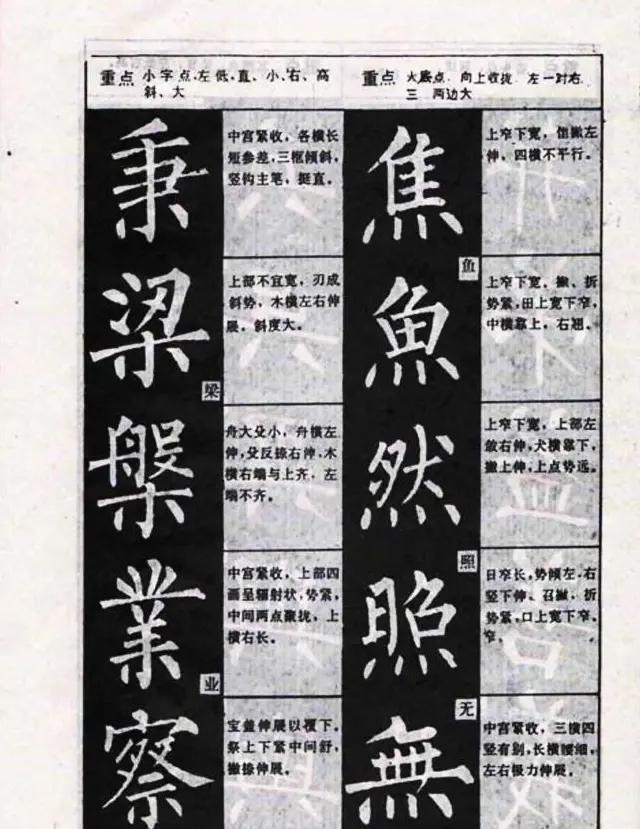 重点 小字点、左低、直、小、右、高
斜、大
秉
中宫紧收，各横长
短参差，三枢倾斜，
竖钩主笔，挺直。
梁
梁
上部不宜宽，刃成
斜势，木横左右伸
展，斜度大。
槃
舟大殳小，舟横左
伸，殳反捺右伸，木
横右端与上齐，左
端不齐。
業
业
中宫紧收，上部四
画呈辐射状，势紧，
中间两点聚拢，上
横右长。
察
宝盖伸展以覆下。
祭上下紧中间舒，
撇捺伸展。
重点 火底点、向上收拢、左一对右
三 两边大
焦
上窄下宽，隹撇左
伸，四横不平行。
魚
鱼
上窄下宽，撇、折
势紧，田上宽下窄，
中横靠上，右翘。
然
上窄下宽，上部左
敛右伸，犬横靠下，
撇上伸，上点势远。
照
照
日窄长，势倾左，右
竖下伸、召撇、折
势紧，口上宽下窄。
窄，
無
无
中宫紧收，三横四
竖有别，长横腰细，
左右极力伸展。